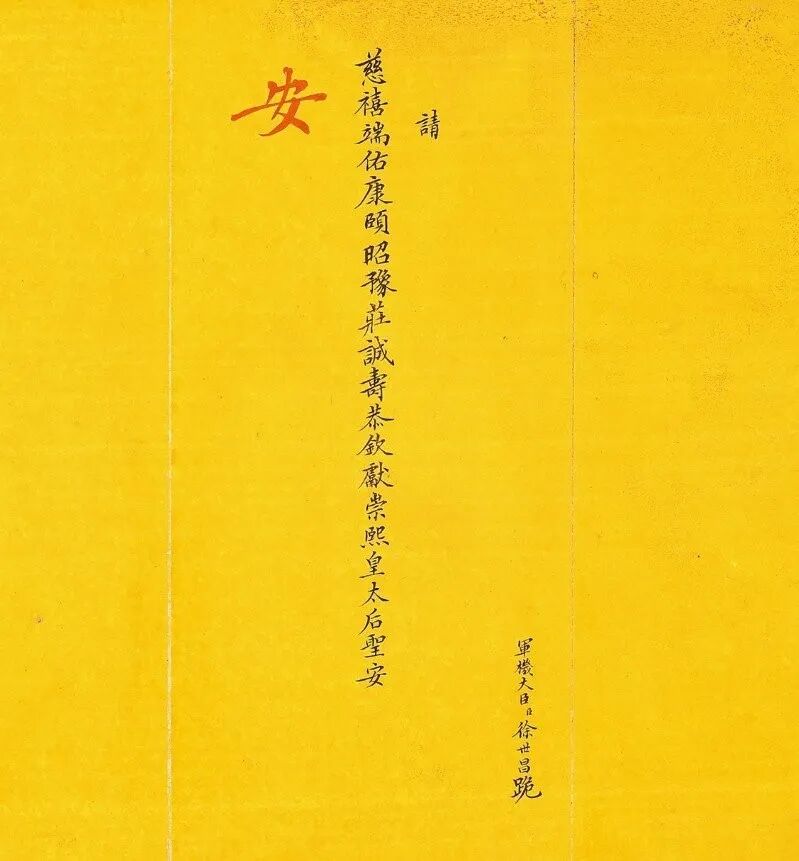 軍機大臣臣徐世昌跪
請
慈禧端佑康頤昭豫莊誠壽恭欽獻崇熙皇太后聖安
安